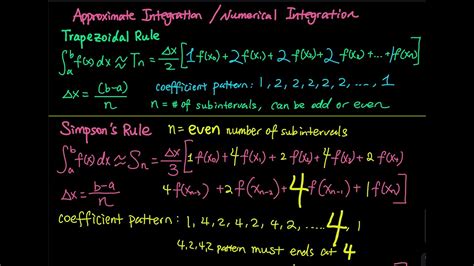 Approximate Integration / Numerical Integration
Trapezoidal Rule
∫ₐᵇ f(x) dx ≈ Tₙ = Δx/2 [1f(x₀)+2f(x₁)+2f(x₂)+2f(x₃)+...+1f(xₙ)]
Δx = (b-a)/n
coefficient pattern: 1, 2, 2, 2, 2, 2, ...., 1
n = # of subintervals, can be odd or even
Simpson's Rule n = even number of subintervals
∫ₐᵇ f(x) dx ≈ Sₙ = Δx/3 [1f(x₀)+4f(x₁)+2f(x₂)+4f(x₃)+2f(x₄)
Δx = b-a/n
4f(xₙ₋₃)+2f(xₙ₋₂)+4f(xₙ₋₁)+1f(xₙ)]
coefficient pattern: 1, 4, 2, 4, 2, 4, 2, ..... 4, 1
4,2,4,2 pattern must ends at 4